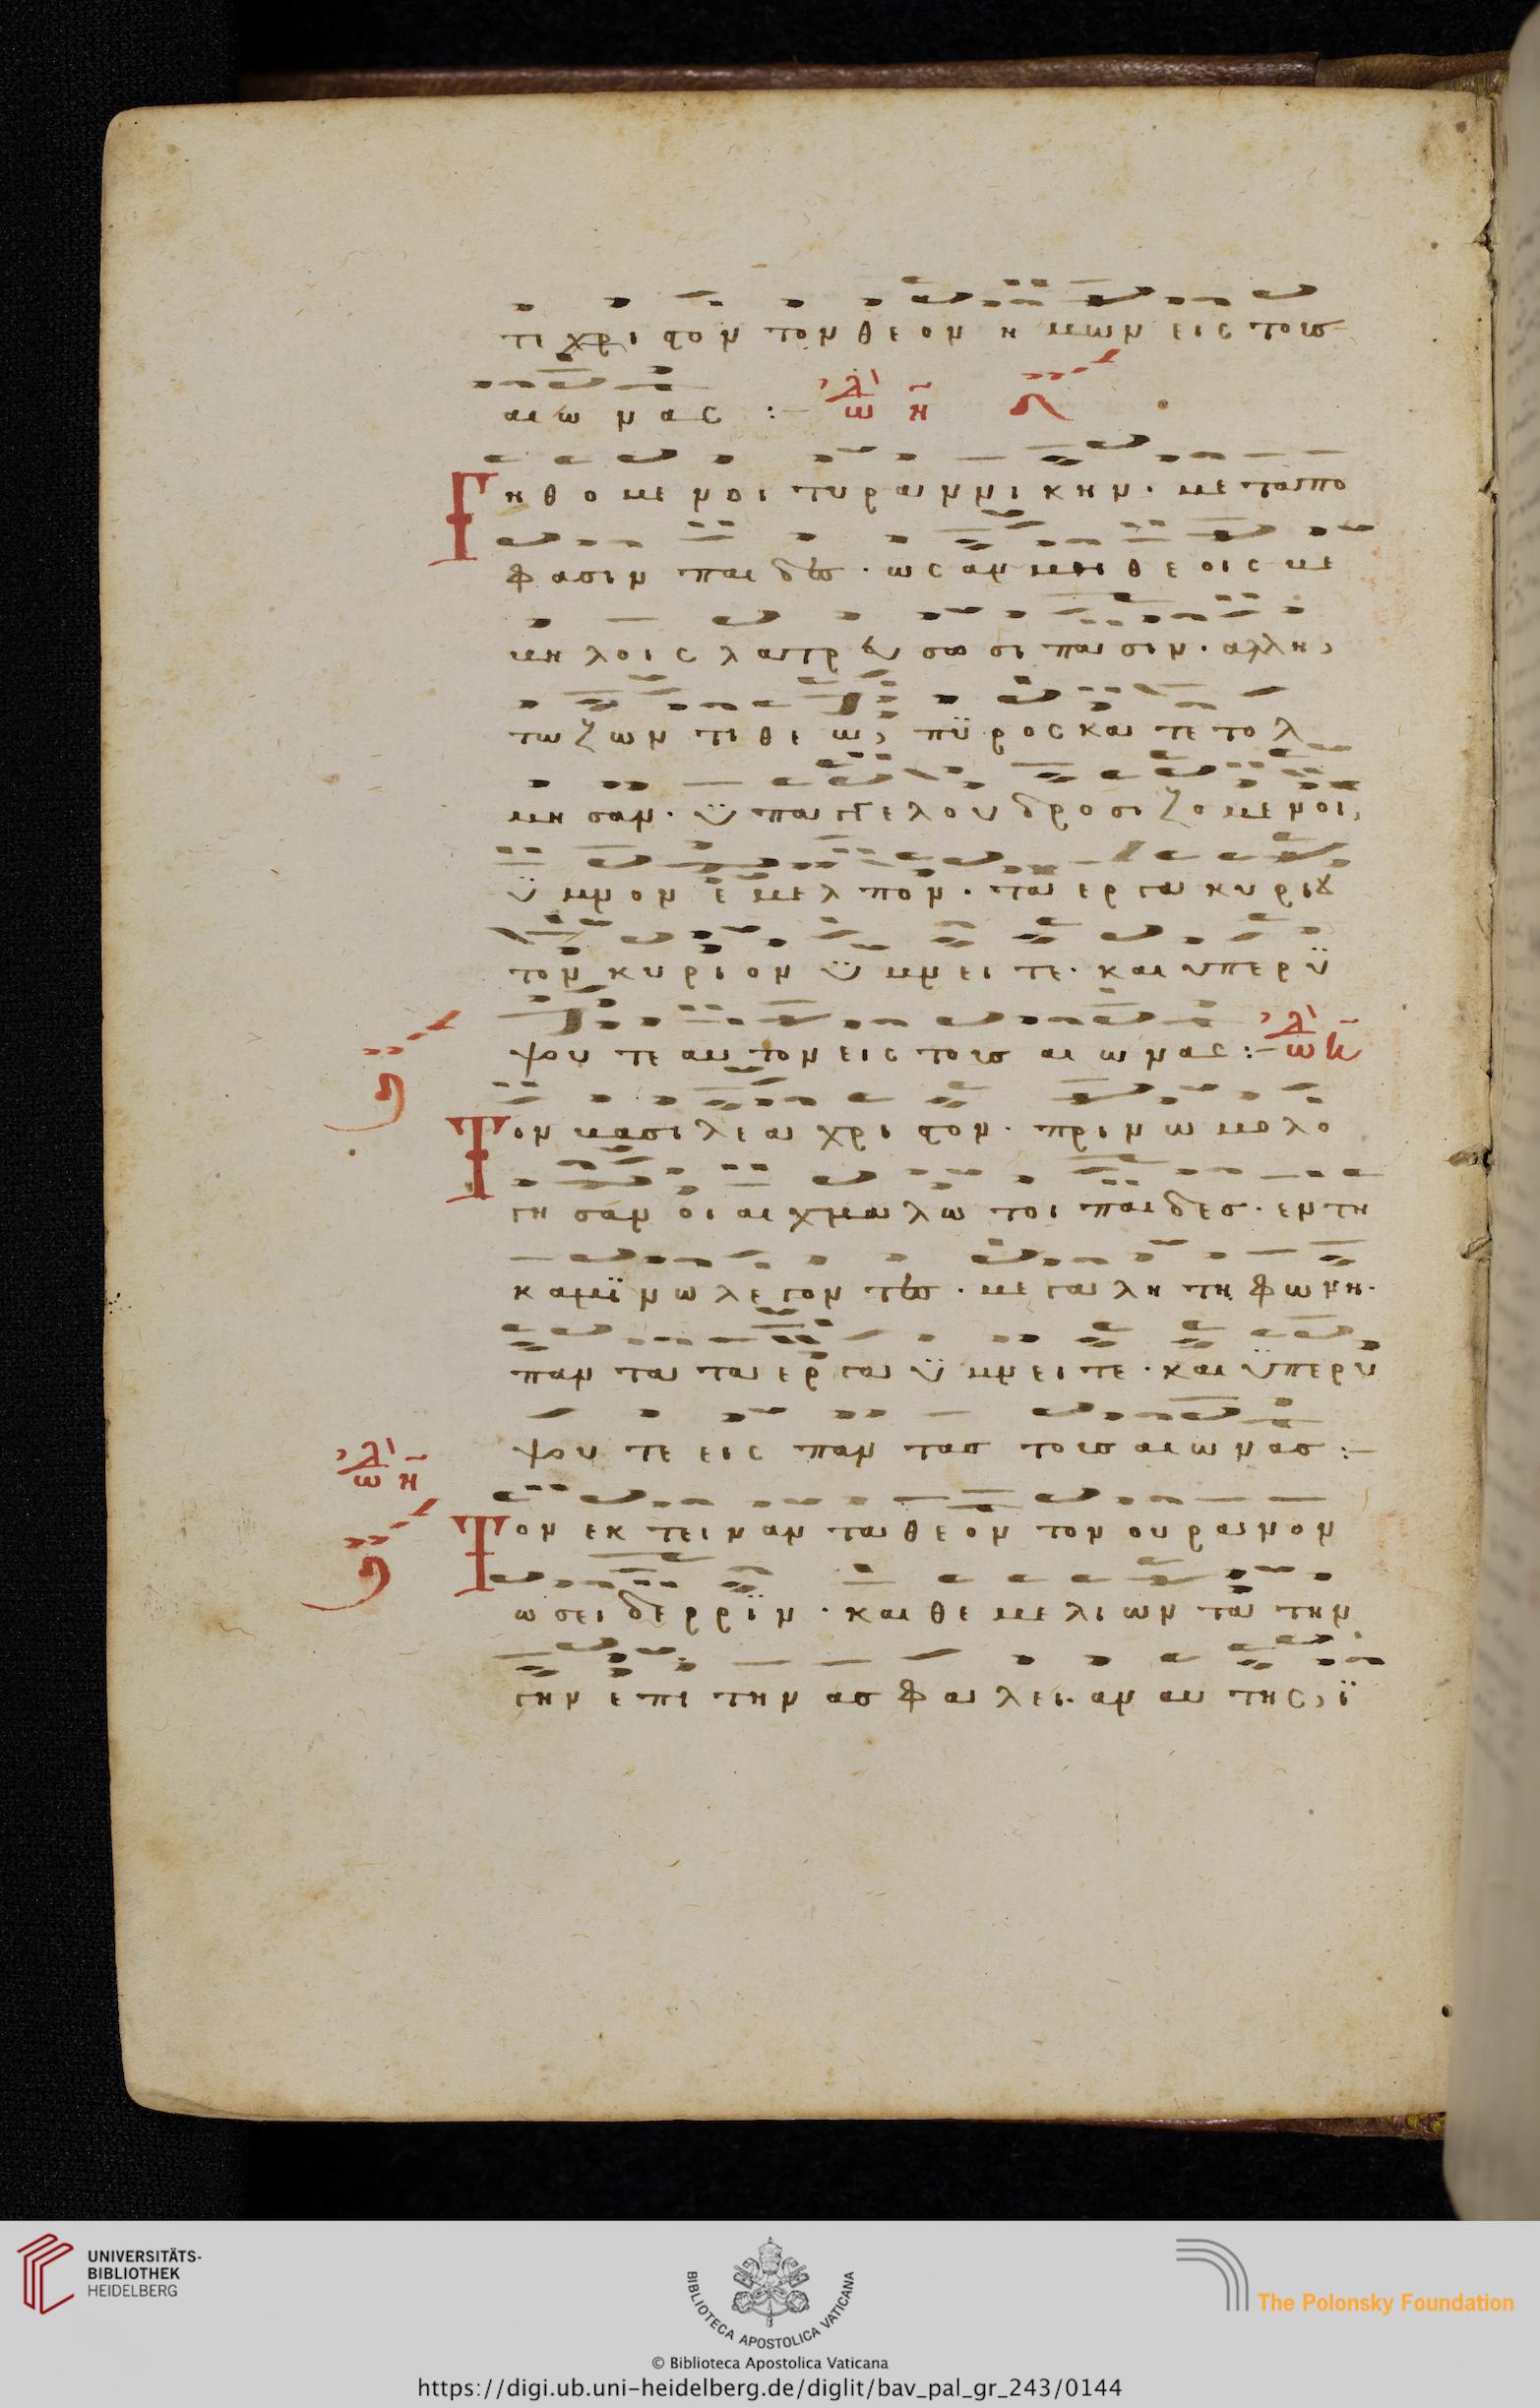 τι χριστον τον θεον ημων εις τους
αιωνας :– ωδη η
Γηθομενοι τυραννικην· μεταπο
φασιν παιδες· ως αν μη θεοις βε
βηλοις λατρευσωσι πασιν· αλλη,
τω ζωντι θεω, πϋρος κατετολ
μησαν· ϋπ αγγελου δροσιζομενοι,
ϋμνον εμελπον· τα εργα κυριου
τον κυριον ϋμνειτε· και υπερϋ
ψουτε αυτον εις τους αιωνας :– ωδη
Τον βασιλεα χριστον· πριν ωμολο
γησαν οι αιχμαλωτοι παιδες· εν τη
καμϊνω λεγοντες· μεγαλη τη φωνη·
παντα τα εργα ϋμνειτε· και ϋπερυ
ψουτε εις παντας τους αιωνας :–
ωδη η
Τον εκτειναντα θεον τον ουρανον
ωσει δερρϊν· και θεμελιωντα την
γην επι την ασφαλειαν αυτης, ϊ
UNIVERSITÄTS-
BIBLIOTHEK
HEIDELBERG
BIBLIOTECA APOSTOLICA VATICANA
The Polonsky Foundation
© Biblioteca Apostolica Vaticana
https://digi.ub.uni-heidelberg.de/diglit/bav_pal_gr_243/0144